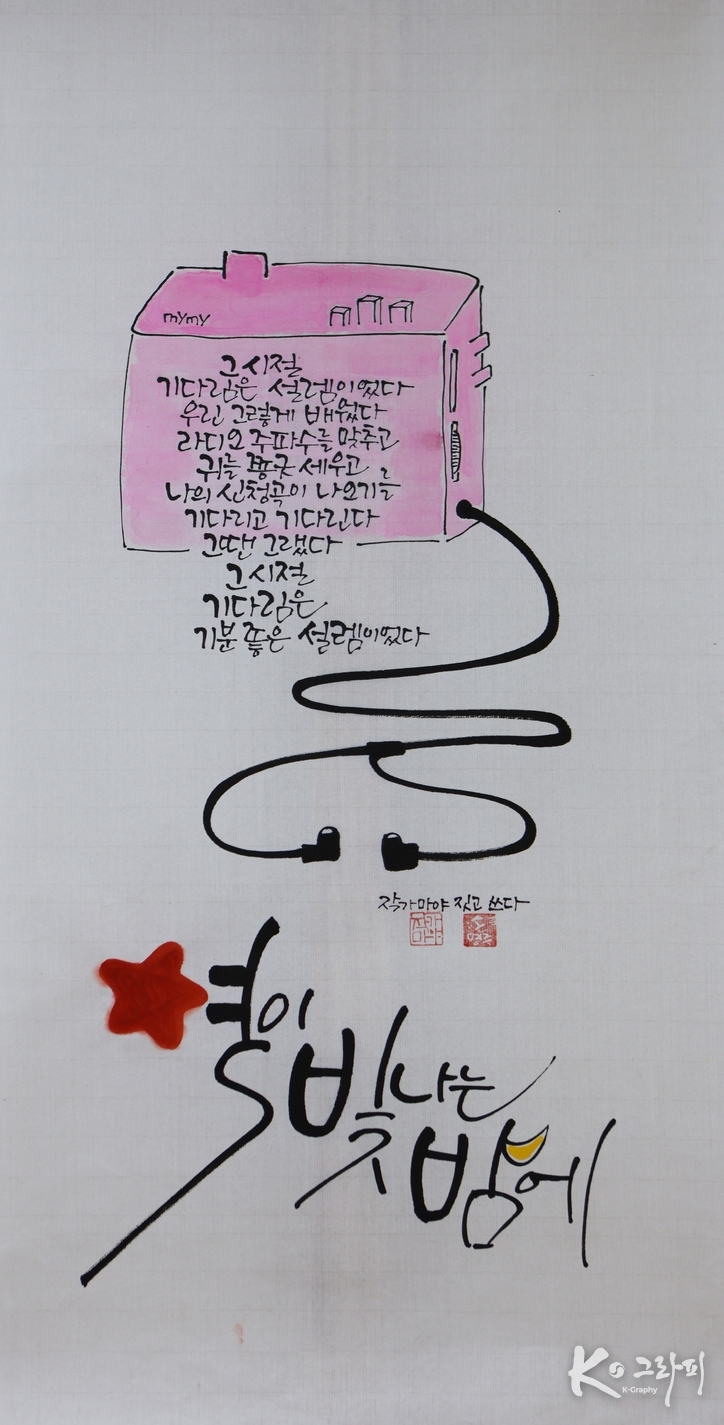 mymy
그 시절
기다림은 설렘이었다
우린 그렇게 배웠다
라디오 주파수를 맞추고
귀를 쫑긋 세우고
나의 신청곡이 나오기를
기다리고 기다린다
그땐 그랬다
그 시절
기다림은
기분 좋은 설렘이었다
작가마야 짓고 쓰다
별이 빛나는
밤에
K 그라피
K-Graphy